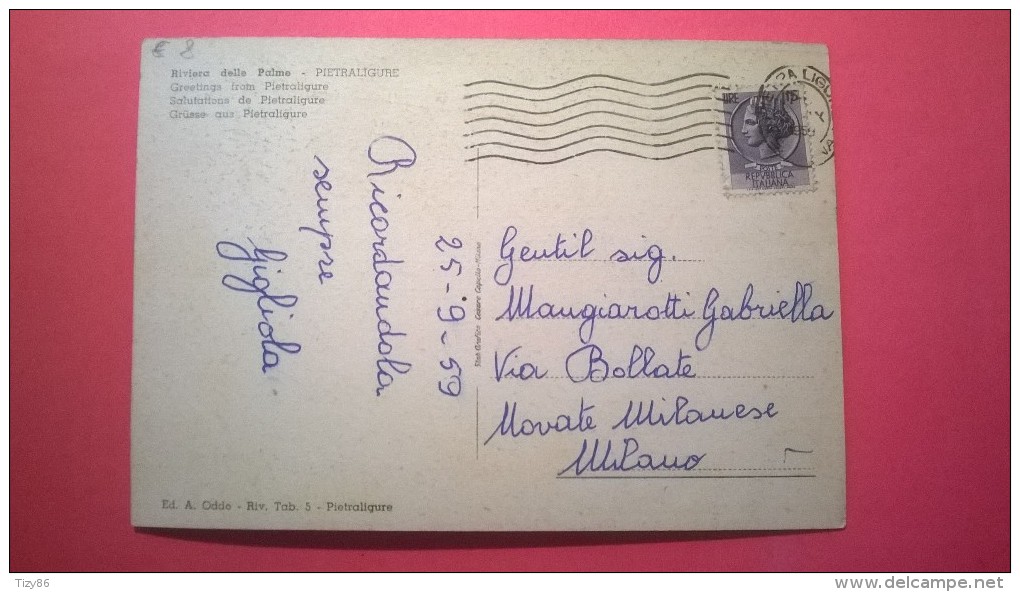 € 8
Riviera delle Palme - PIETRALIGURE
Greetings from Pietraligure
Salutations de Pietraligure
Grüsse aus Pietraligure
25-9-59
Ricordandola
sempre
Gigliola
Gentil sig.
Mangiarotti Gabriella
Via Bollate
Novate Milanese
Milano
LIRE 15
POSTE
REPVBBLICA
ITALIANA
Ed. A. Oddo - Riv. Tab. 5 - Pietraligure
Tizy86
www.delcampe.net